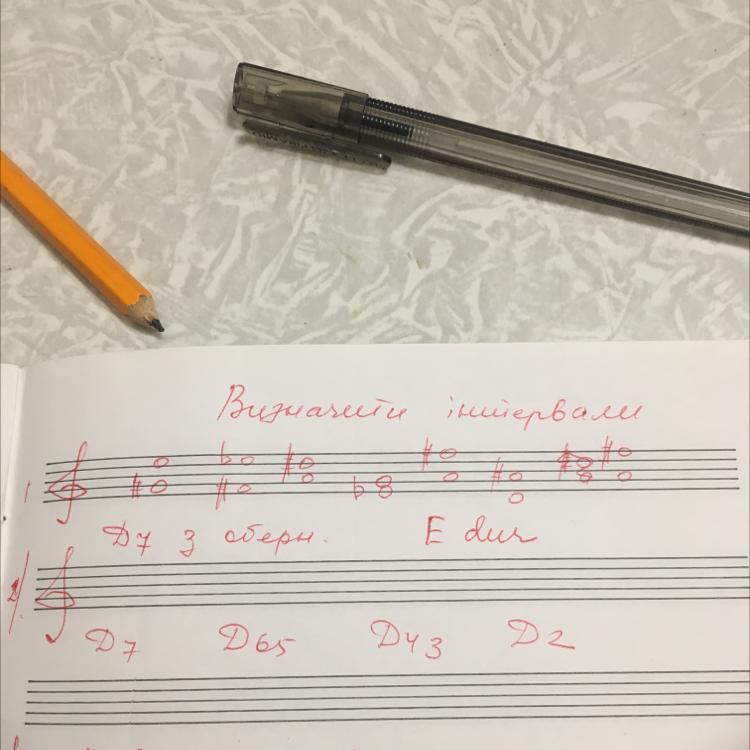 Визначити інтервали
1
D7 з оберн. E dur
2
D7 D65 D43 D2